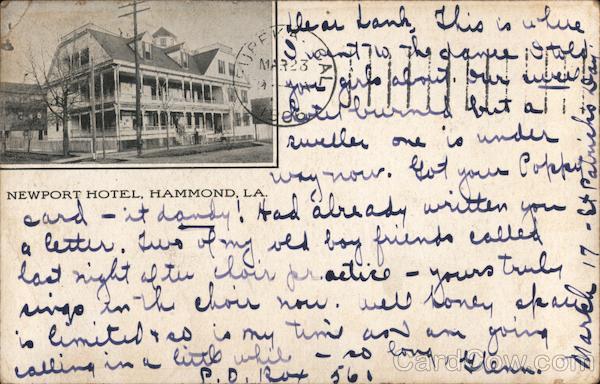 Dear Hank, This is where
I went to the dance I told
you girls about. Our
hotel burned but a
sweller one is under
way now. Got your Poppy
NEWPORT HOTEL, HAMMOND, LA.
card – it dandy! Had already written you
a letter. Two of my old boy friends called
last night after choir practice – yours truly
sings in th choir now. Well honey space
is limited & so is my time as I am going
calling in a little while – so long, Glenn.
P.O. Box 561
March 17 – St Patricks Day.
CUPERTINO CAL.
MAR 23
CardCow.com